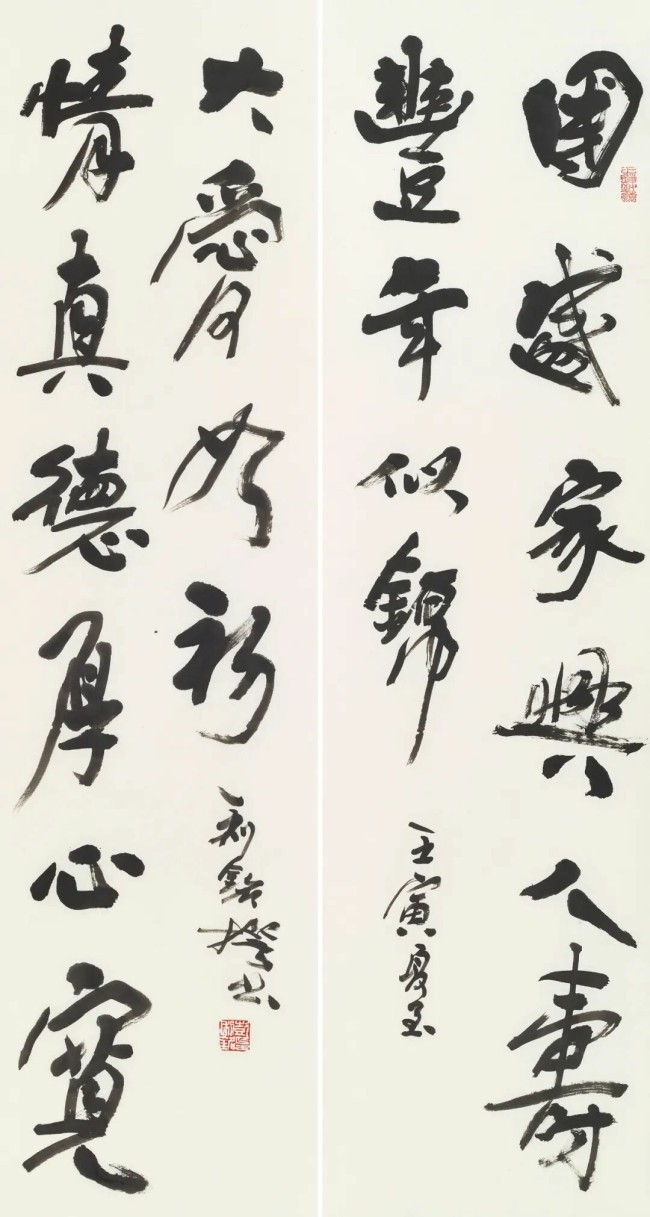 國盛家興人壽
豐年似錦
壬寅夏至
情真德厚心寬
大愛如初
利銘撰書